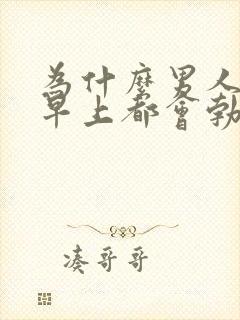 為什麼男人
早上都會勃
凑哥哥